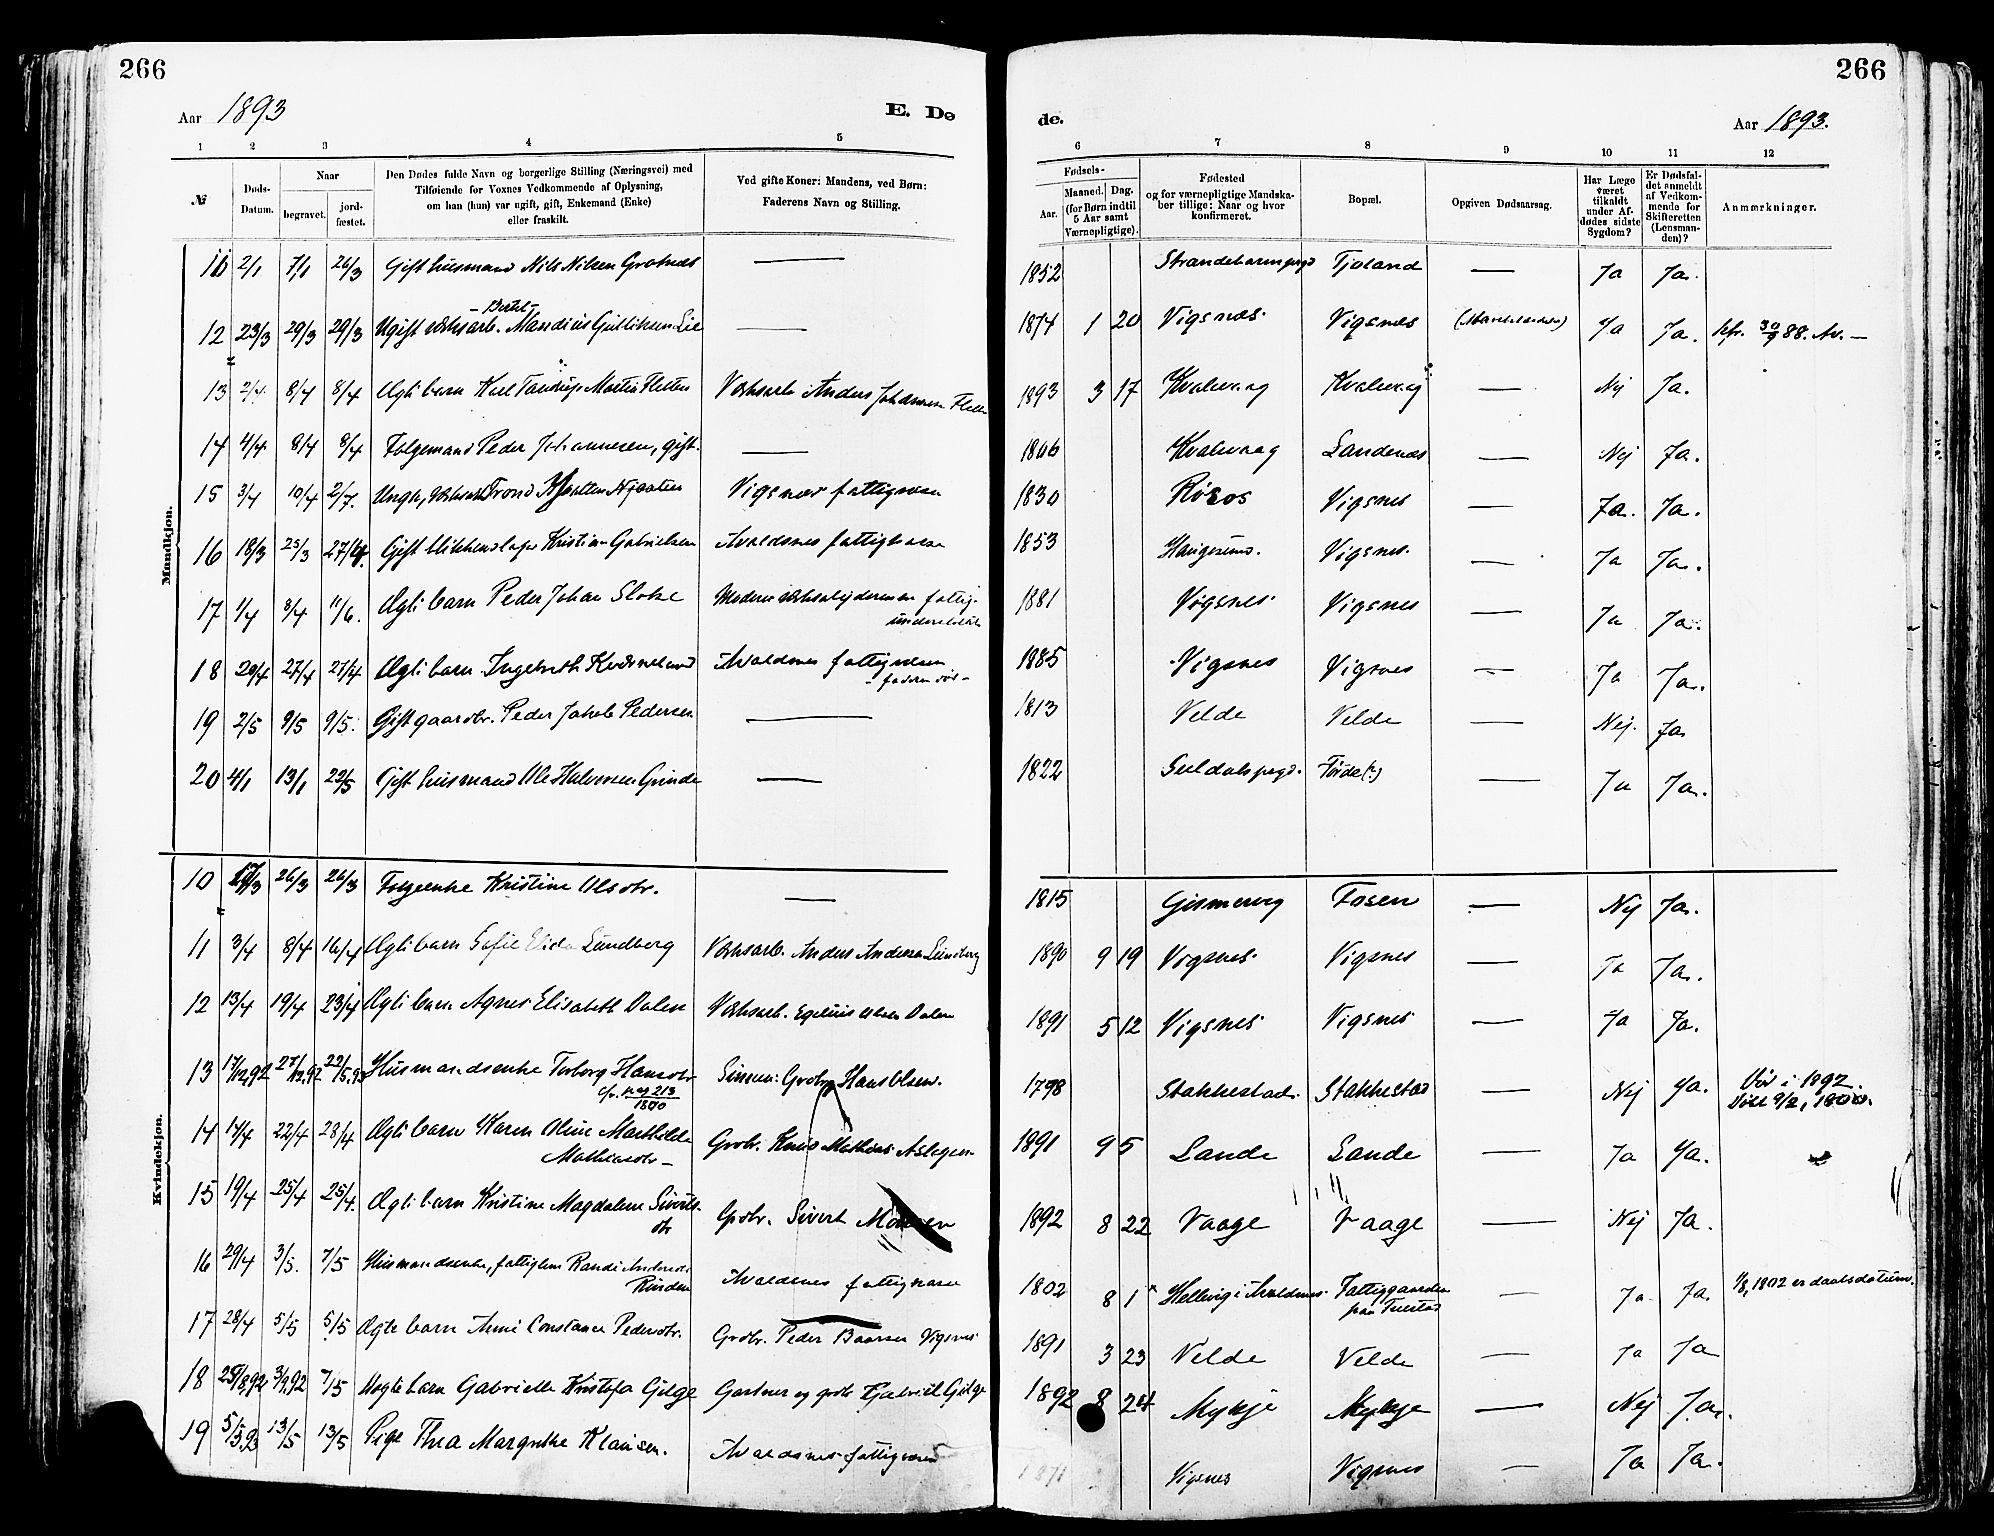 266
266
Aar 1893
E. Dø
de.
Aar 1893.
1 2 3 4 5
6 7 8 9 10 11 12
№
Døds-Datum.
Naar
begravet.
jord-fæstet.
Den Dødes fulde Navn og borgerlige Stilling (Næringsvei) med
Tilføiende for Voxnes Vedkommende af Oplysning,
om han (hun) var ugift, gift, Enkemand (Enke)
eller fraskilt.
Ved gifte Koner: Mandens, ved Børn:
Faderens Navn og Stilling.
Fødsels-
Aar.
Maaned. Dag.
(for Børn indtil
5 Aar samt
Værnepligtige).
Fødested
og for værnepligtige Mandska-
ber tillige: Naar og hvor
konfirmeret.
Bopæl.
Opgiven Dødsaarsag.
Har Læge
været
tilkaldt
under Af-
dødes sidste
Sygdom?
Er Dødsfal-
det anmeldt
af Vedkom-
mende for
Skifteretten
(Lensman-
den)?
Anmærkninger.
Mandkjøn.
11 2/1 7/1 26/3 Gift husmand Nils Nilsen Grotnæs — 1852 Tjoland — Ja Ja.
12 23/3 29/3 29/3 Ugift Lie — 1874 1 20 Vigsnæs. Vigsnæs Ja Ja. kfr. 30/9 88. Av. —
13 2/4 8/4 8/4 Ægti barn Karl Martin Fletten Værksarb Anders Johannesen 1893 3 17 Kvalevaag Kvalevaag — Nej Ja.
14 4/4 8/4 8/4 Folgemand Peder Johannesen, gift. — Kvalevaag Sandenæs — Nej Ja.
15 3/4 10/4 2/7. Trond Vigsnæs fattigvæsen 1830 Vigsnes — Ja. Ja.
16 18/3 25/3 Gift Kristian Gabrielsen Avaldsnes fattigvæsen 1853 Haugesund. Vigsnes. — Ja Ja.
17 1/4 8/4 11/6. Ægti barn Peder Johan 1881 Vigsnes. Vigsnes — Ja Ja.
18 20/4 27/4 27/4 Ægti barn Ingebreth Kværneland Avaldsnes fattigvæsen 1885 Vigsnes Vigsnes — Ja Ja.
19 2/5 9/5 9/5. Gift gaardbr. Peder Jakob Pedersen — 1813 Velde Velde — Nej. Ja
20 4/1 13/1 22/5 Gift husmand Ole Halvorsen Grinde — 1822 Suldalspgd. Førde(?) — Ja Ja.
Kvindekjøn.
10 26/3 26/3 Folgeenke Kristine Olsdtr. — 1815 Gismervig Fosen — Nej Ja.
11 3/4 8/4 16/4 Ægti barn Sofie Lundberg Værksarb. Anders Andersen Lundberg 1890 9 19 Vigsnes. Vigsnes — Ja Ja.
12 13/4 19/4 23/4 Ægti barn Agnes Elisabeth Dalen Værksarb. Olsen Dalen 1891 5 12 Vigsnes Vigsnes — Ja Ja.
13 17/12,92 27/12,92 22/5,93 Husmandsenke Torborg Hansdtr
cfr. pag 213
1800
Hans Olsen. 1798 Stakkestad. Stakkestad — Nej Ja. Død i 1892.
Døbt 9/2, 1800.
14 17/4 22/4 28/4 Ægti barn Karen Oline Mathilde
Mathiasdtr —
Grdbr. Knud Mathias Aslagsen 1891 9 5 Sande Sande — Ja Ja.
15 19/4 25/4 25/4. Ægti barn Kristine Magdalene Siverts-
dtr
Grdbr. Sivert Monsen 1892 8 22 Vaage Vaage — Nej Ja.
16 29/4 3/5. 7/5 Husmandsenke, fattiglem Randi
Avaldsnes fattigvæsen 1802 8 1 Hellevig i Avaldsnes. Fattiggaarden
paa
— Ja Ja. 1/8, 1802 er daabsdatum.
17 28/4 5/5 5/5 Ægte barn Anne Constance Pedersdtr. Grdbr. Peder Baarsen Vigsnes 1891 3 23 Velde Velde — Ja Ja
18 25/8,92 3/9,92 7/5 Uægte barn Gabrielle Kristofa Gilje Gartner og grdb Gabriel Gilje 1892 8 24 Mykje Mykje — Nej Ja.
19 5/5,93 13/5 13/5 Pige Thea Margrethe Klausen. Avaldsnes fattigvæsen 1871 Vigsnes Vigsnes — Ja Ja.